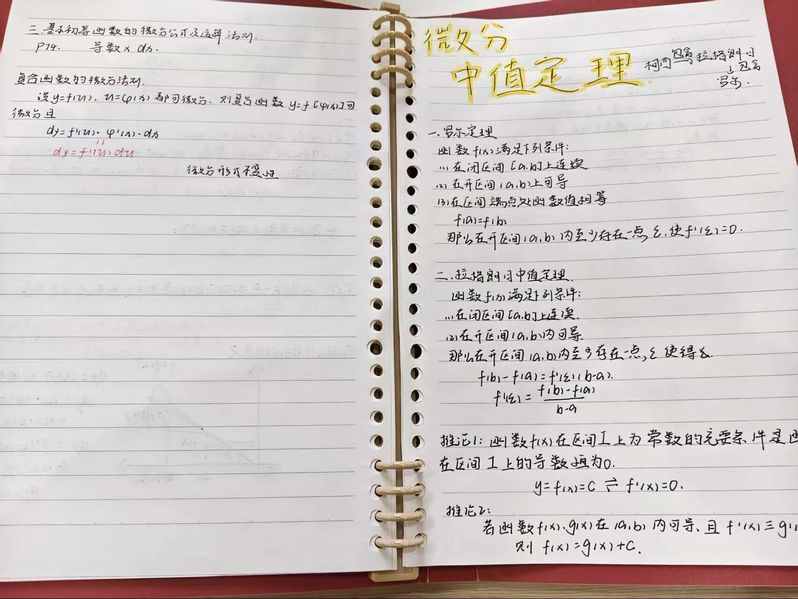 三.基本初等函数的微分公式及运算法则.
P74. 导数×dx.
复合函数的微分法则.
设y=f(u), u=φ(x)都可微分, 则复合函数 y=f[φ(x)]可
微分且
dy=f'(u)·φ'(x)·dx
dy=f'(u)du
微分形式不变性
微分
中值定理
柯西 包含 拉格朗日
↓包含
罗尔
一.罗尔定理
函数f(x)满足下列条件:
(1)在闭区间[a,b]上连续
(2)在开区间(a,b)上可导
(3)在区间端点处函数值相等
f(a)=f(b)
那么在开区间(a,b)内至少存在一点ξ,使f'(ξ)=0.
二.拉格朗日中值定理
函数f(x)满足下列条件:
(1)在闭区间[a,b]上连续
(2)在开区间(a,b)内可导
那么在开区间(a,b)内至少存在一点ξ使得
f(b)-f(a)=f'(ξ)(b-a).
f'(ξ)=f(b)-f(a)
b-a
推论1:函数f(x)在区间I上为常数的充要条件是函
在区间I上的导数恒为0.
y=f(x)=C ⇌ f'(x)=0.
推论2:
若函数f(x),g(x)在(a,b)内可导,且f'(x)≡g'(
则 f(x)=g(x)+C.